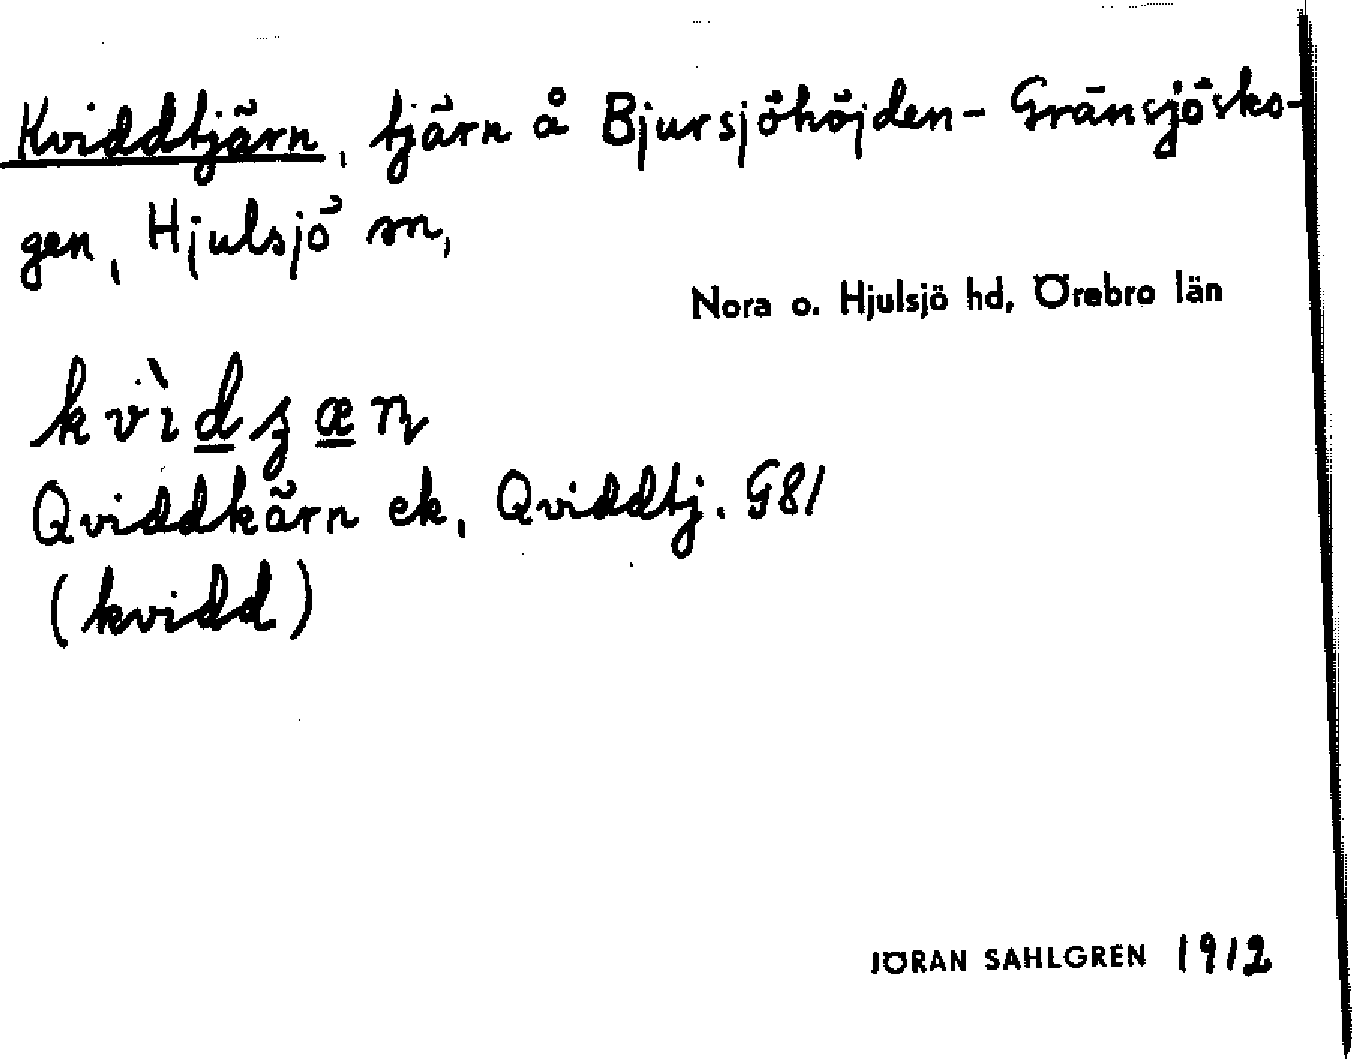 Kviddtjärn, tjärn å Bjursjöhöjden- Gränsjösko-
gen, Hjulsjö sn,
Nora o. Hjulsjö hd, Örebro län
kvìdʒæɳ
Qviddkärn ek, Qviddtj. G81
(kvidd)
JÖRAN SAHLGREN 1912